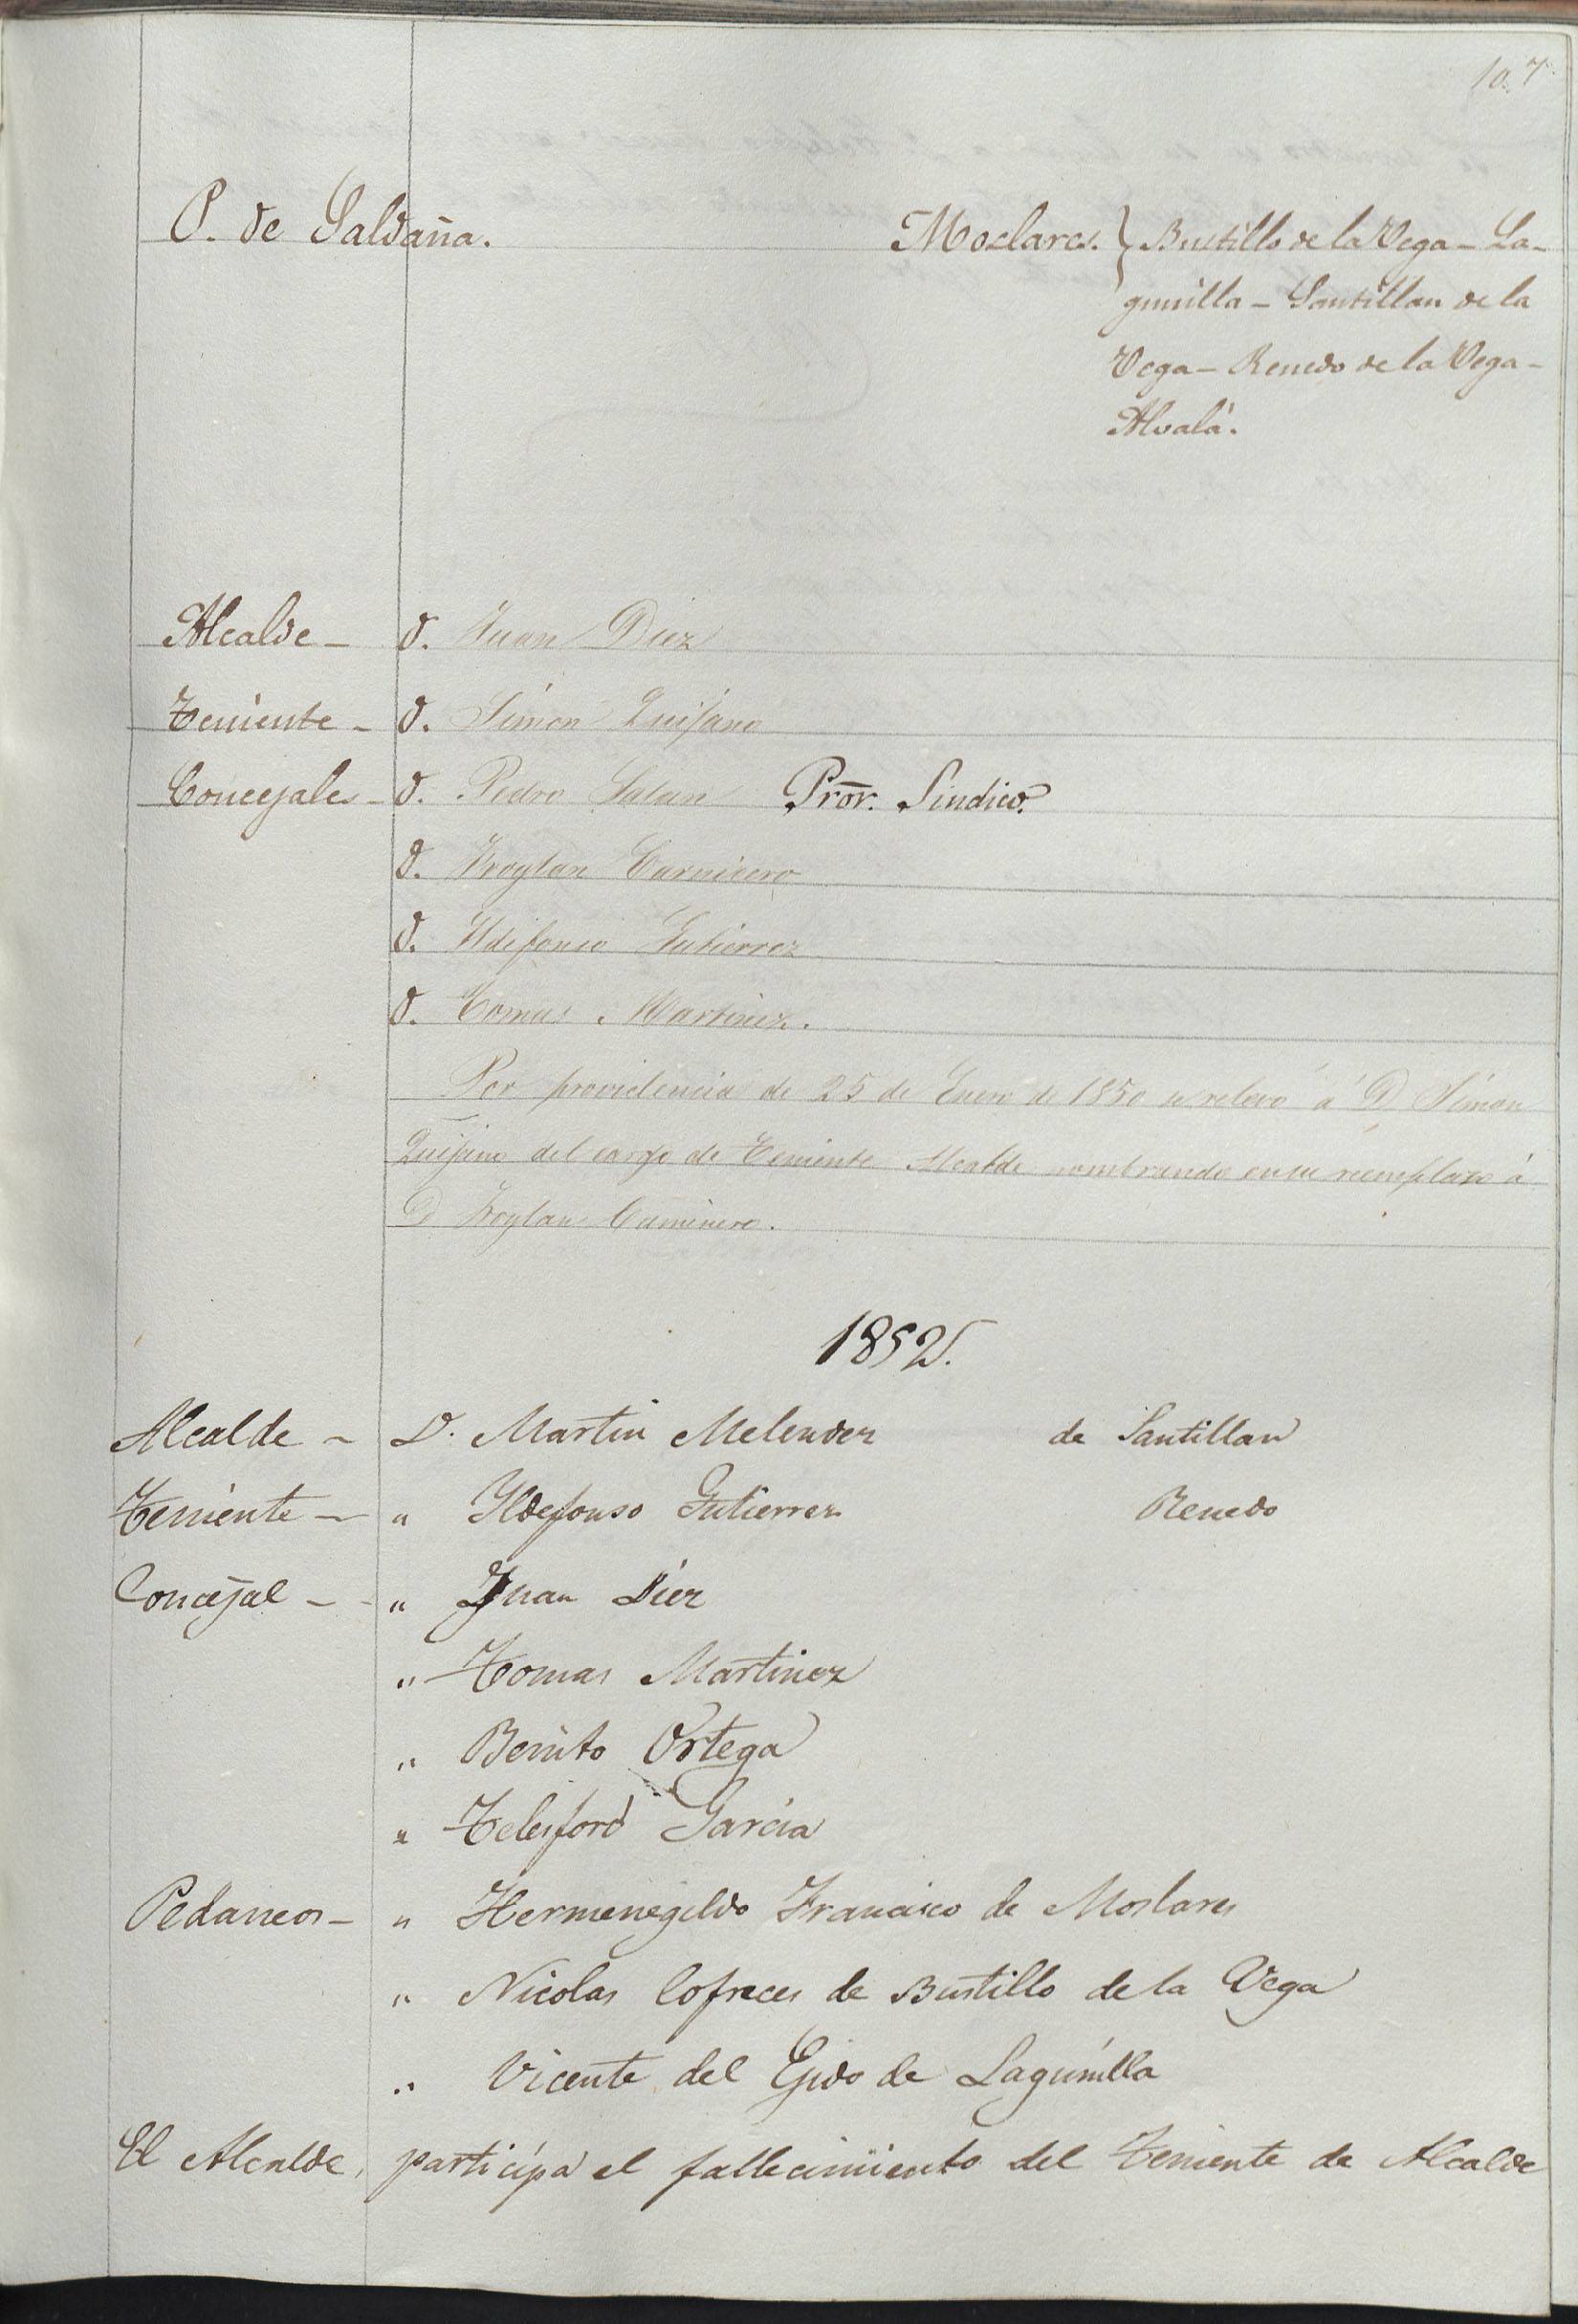 107
P. de Saldaña.
Moslares. } Bustillo de la Vega - La-
gunilla - Santillan de la
Vega - Renedo de la Vega -
Alvalá.
Alcalde - D. Juan Diez
Teniente - D. Simon Quijano
Concejales - D. Pedro Salan Pror. Sindico.
D. Froylan Carnicero
D. Ildefonso Gutierrez
D. Tomas Martinez.
Por providencia de 25 de Enero de 1850 se relevó á D. Simon
Quijano del cargo de Teniente Alcalde nombrando en su reemplazo á
D Froylan Caminero.
1852.
Alcalde - D. Martin Melendez de Santillan
Teniente - " Ildefonso Gutierrez Renedo
Concejal - - " Juan Diez
" Tomas Martinez
" Benito Ortega
" Telesforo Garcia
Pedaneos - " Hermenegildo Francisco de Moslares
" Nicolas Cofreces de Bustillo de la Vega
" Vicente del Ejido de Lagunilla
El Alcalde, participa el fallecimiento del Teniente de Alcalde